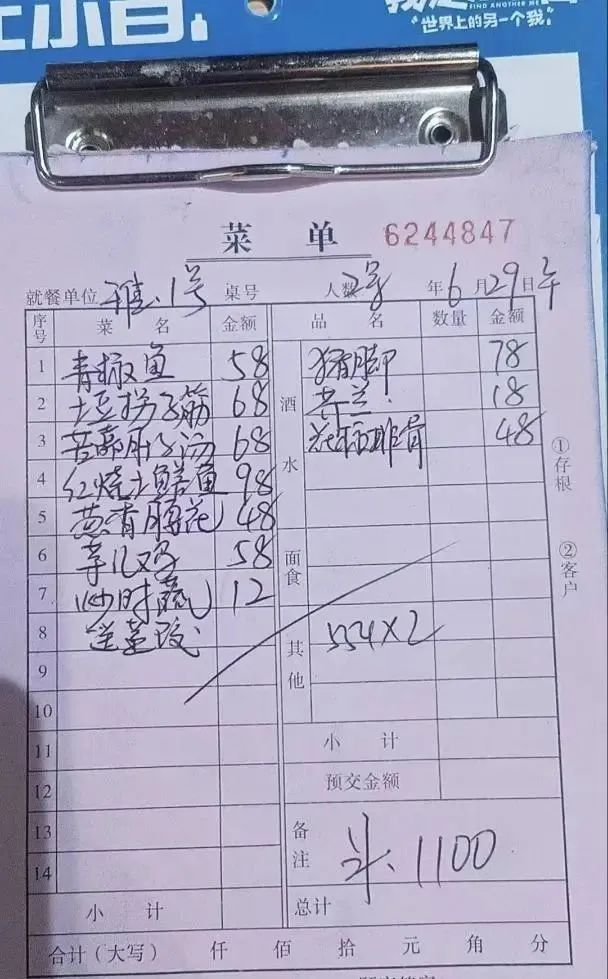 FIND ANOTHER ME
"世界上的另一个我"
菜 单 6244847
就餐单位 雅.1号 桌号 人数 2 年 6 月 29 日 午
序号 菜 名 金额 品 名 数量 金额
1 青椒鱼 58 酒水 猪脚 78
2 土豆拐子筋 68 18
3 68 花 排骨 48
4 红烧土鲜鱼 98
5 葱香腰花 48
6 鸡 58 面食
7 炒时蔬 12
8 送 其他 554×2
9
10
11 小 计
12 预交金额
13 备注 1100
14
小 计 总计
合计（大写） 仟 佰 拾 元 角 分
①存根
②客户